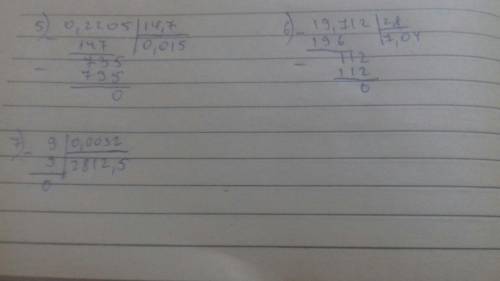 5) 0,2205 | 14,7
147 | 0,015
735
735
0
6) 19,712 | 28
196 | 7,04
112
112
0
7) 9 | 0,0032
9 | 2812,5
0